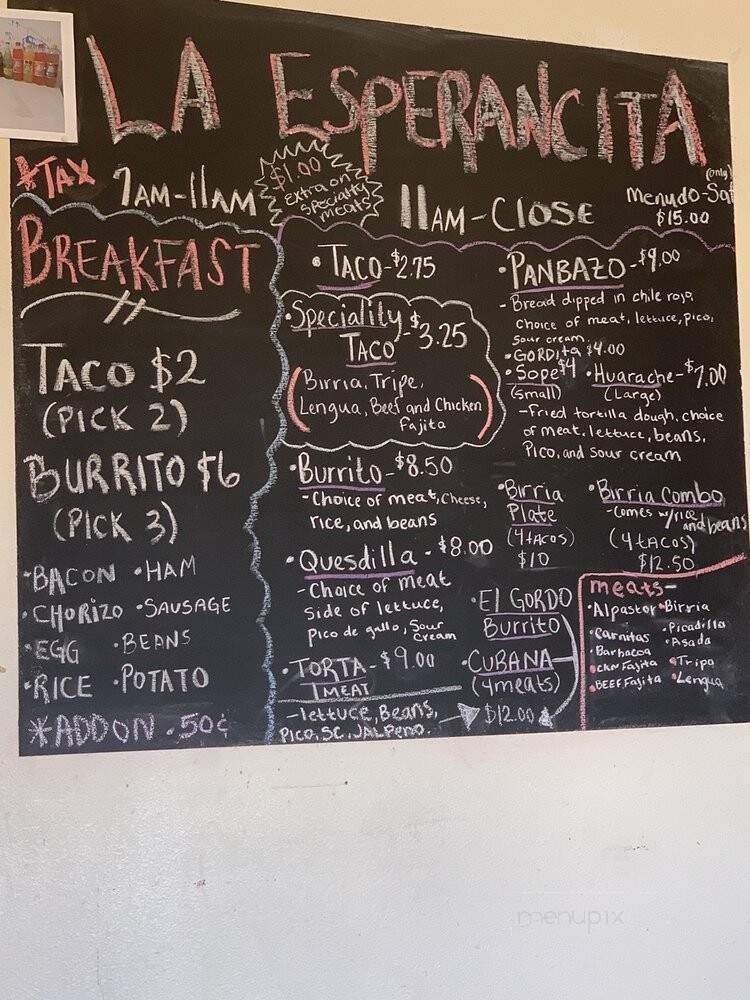 LA ESPERANCITA
*TAX
7AM-11AM
$1.00
extra on
specialty
meats
11AM-CLOSE
(only)
menudo-Sat
$15.00
BREAKFAST
TACO $2
(PICK 2)
BURRITO $6
(PICK 3)
•BACON •HAM
•CHORIZO •SAUSAGE
•EGG •BEANS
•RICE •POTATO
*ADDON .50¢
•TACO-$2.75
•Speciality $3.25
TACO
(Birria, Tripe,
Lengua, Beef and Chicken
fajita)
•Burrito-$8.50
-Choice of meat, Cheese,
rice, and beans
•Quesdilla-$8.00
-Choice of meat
side of lettuce,
Pico de gallo, Sour
cream
•TORTA-$9.00
1 MEAT
-lettuce, Beans,
PICO, SC, JALPENO.
•PANBAZO-$9.00
-Bread dipped in chile rojo,
choice of meat, lettuce, pico,
sour cream,
•GORDITA $4.00
•Sope $4 •Huarache-$7.00
(Small) (Large)
-Fried tortilla dough, choice
of meat, lettuce, beans,
Pico, and sour cream
•Birria
Plate
(4 tacos)
$10
•Birria Combo
-comes w/rice
and beans
(4 tacos)
$12.50
•El GORDO
Burrito
•CUBANA
(4 meats)
$12.00
meats-
•Alpastor •Birria
•Carnitas •Picadilla
•Barbacoa •Asada
•CKN Fajita •Tripa
•BEEF Fajita •Lengua
menupix